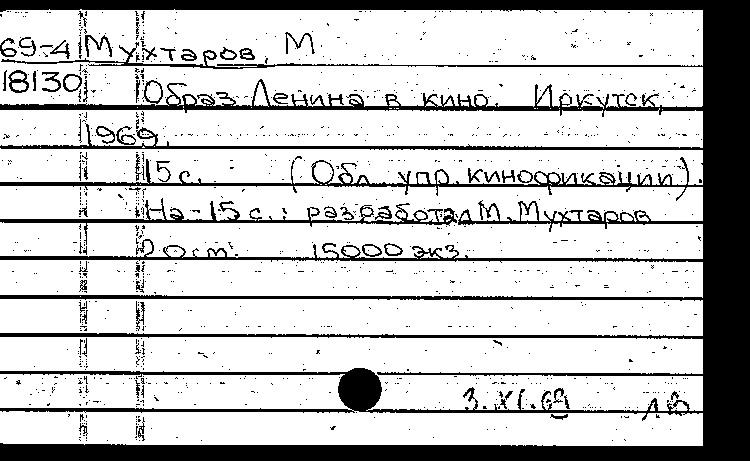 69-4 Мухтаров, М
18130 Образ Ленина в кино. Иркутск,
1969.
15 с. (Обл. упр. кинофикации).
На - 15 с.: разработал М. Мухтаров
15000 экз.
3.XI.69 ЛВ